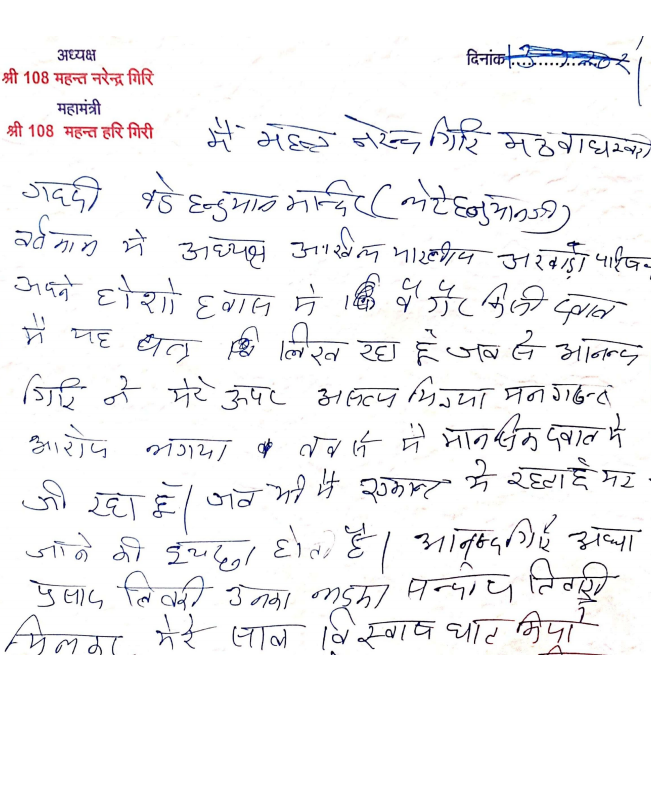 अध्यक्ष
श्री 108 महन्त नरेन्द्र गिरि
महामंत्री
श्री 108 महन्त हरि गिरी
दिनांक
मैं महन्त नरेन्द्र गिरि मठ बाघम्बरी
गद्दी बडे हनुमान मन्दिर (लेटे हनुमानजी)
वर्तमान मे अध्यक्ष अखिल भारतीय अखाड़ा परिषद
अपने होशो हवास मे बगैर किसी दवाव
मै यह पत्र लिख रहा हूँ जब से आनन्द
गिरि ने मेरे ऊपर असत्य मिथ्या मनगढन्त
आरोप लगाया तब से मै मानसिक दवाव मे
जी रहा हूँ। जब भी मै एकान्त मे रहता हूँ मर
जाने की इच्छा होती है। आनन्द गिरि अध्या
प्रसाद तिवारी उनका लडका सन्दीप तिवारी
मिलकर मेरे साथ विस्वासघात किया